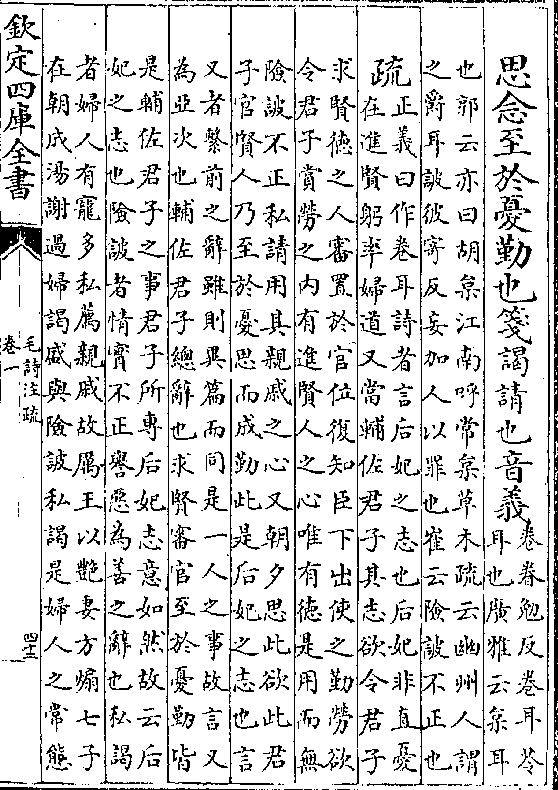 思念至於憂勤也箋謁請也音義
卷眷勉反卷耳苓
耳也廣雅云枲耳
也郭云亦曰胡枲江南呼常枲草木疏云幽州人謂
之爵耳詖彼寄反妄加人以罪也崔云險詖不正也
疏
正義曰作卷耳詩者言后妃之志也后妃非直憂
在進賢躬率婦道又當輔佐君子其志欲令君子
求賢德之人審置於官位復知臣下出使之勤勞欲
令君子賞勞之内有進賢人之心唯有德是用而無
險詖不正私請用其親戚之心又朝夕思此欲此君
子官賢人乃至於憂思而成勤此是后妃之志也言
又者繫前之辭雖則異篇而同是一人之事故言又
為亞次也輔佐君子總辭也求賢審官至於憂勤皆
是輔佐君子之事君子所專后妃志意如然故云后
妃之志也險詖者情實不正譽惡為善之辭也私謁
者婦人有寵多私薦親戚故厲王以艷妻方煽七子
在朝成湯謝過婦謁盛與險詖私謁是婦人之常態
欽定四庫全書
毛詩注疏
卷一